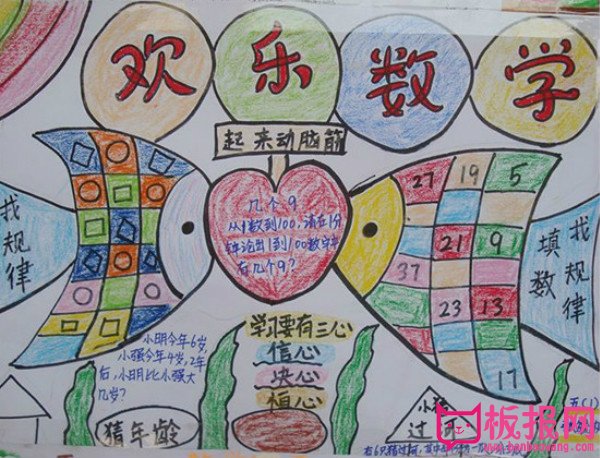 欢乐数学
起来动脑筋
几个9
从1数到100,请在1分
钟论出1到100数字中
有几个9?
找规律
27 19 5
21 9
37
23 13
17
找规律
填数
学习要有三心
信心
决心
恒心
小明今年6岁,
小强今年4岁,2年
后,小明比小强大
几岁?
猜年龄
小猪
过河
五(1)
板报网
www.banbaowang.com